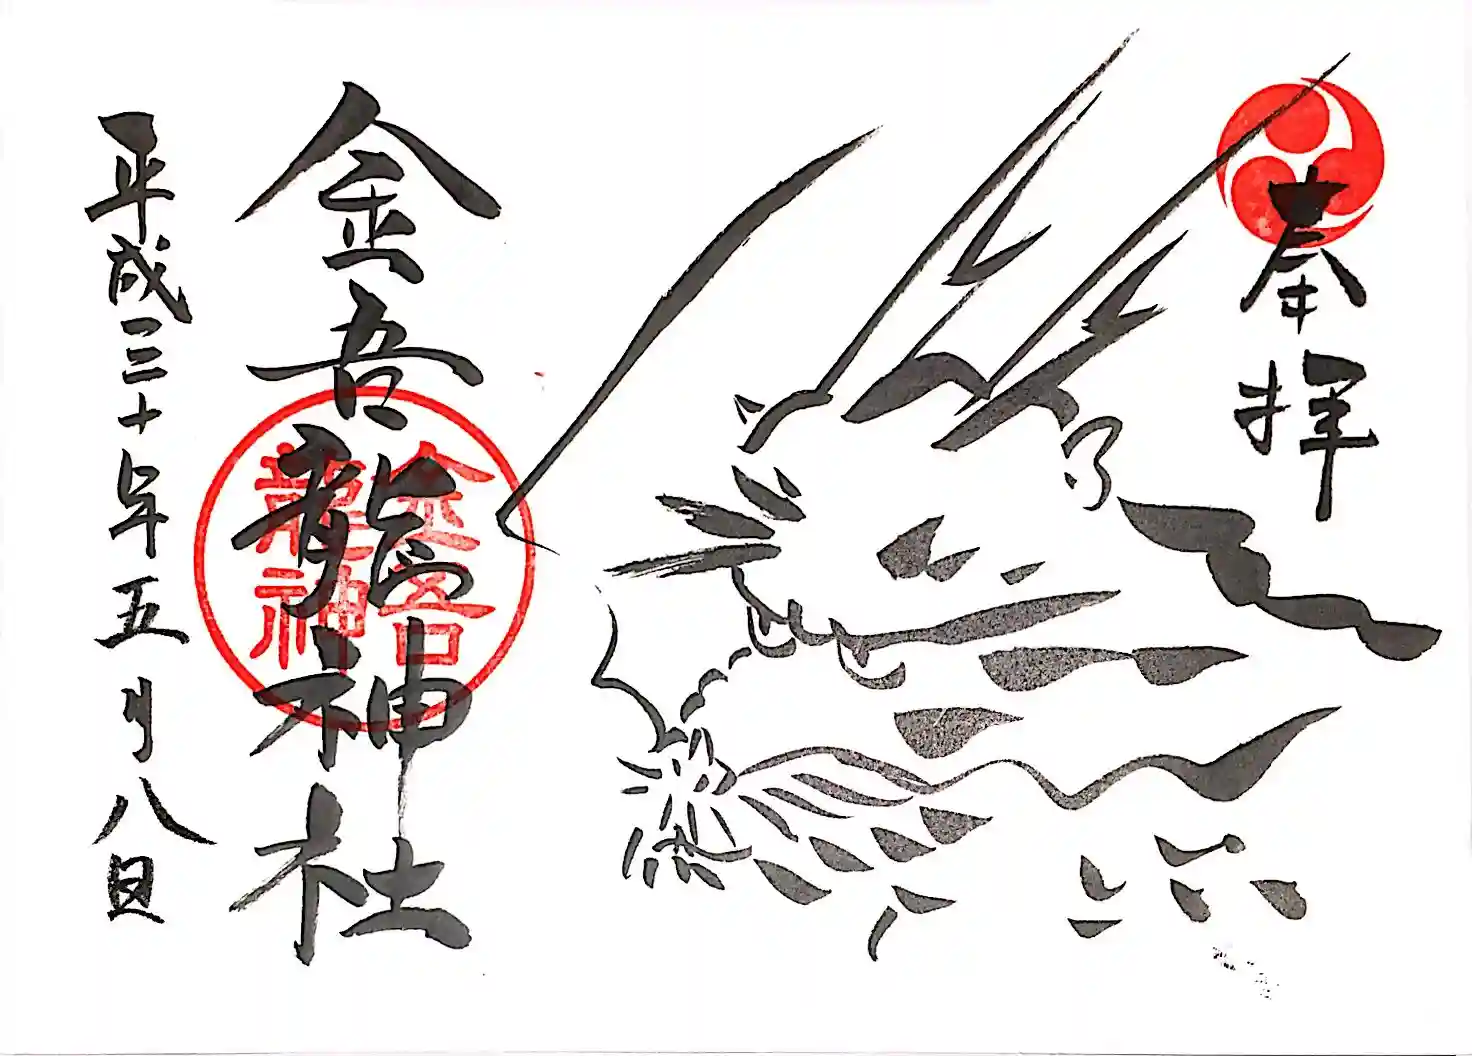 奉拝
金吾龍神社
金吾
龍神
平成三十年五月八日